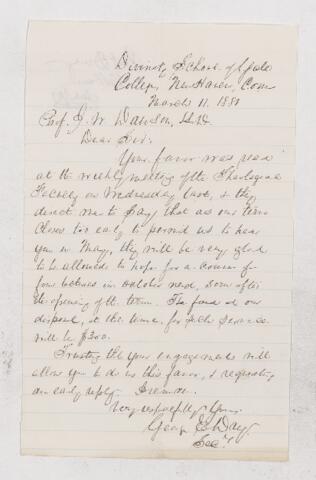 Divinity School of Yale
College, New Haven, Conn
March 11. 1880
Prof. J. W. Dawson, LL.D.
Dear Sir:
Your favor was read
at the weekly meeting of the Theological
Faculty on Wednesday last, & they
direct me to say that as our term
closes too early to permit us to hear
you in May, they will be very glad
to be allowed to hope for a course of
four lectures in October next, soon after
the opening of the term. The fund at our
disposal, at the time, for such services
will be $300.
Trusting that your engagements will
allow you to do us this favor, & requesting
an early reply, I remain,
Very respectfully Yours,
George E. Day.
Sec'y